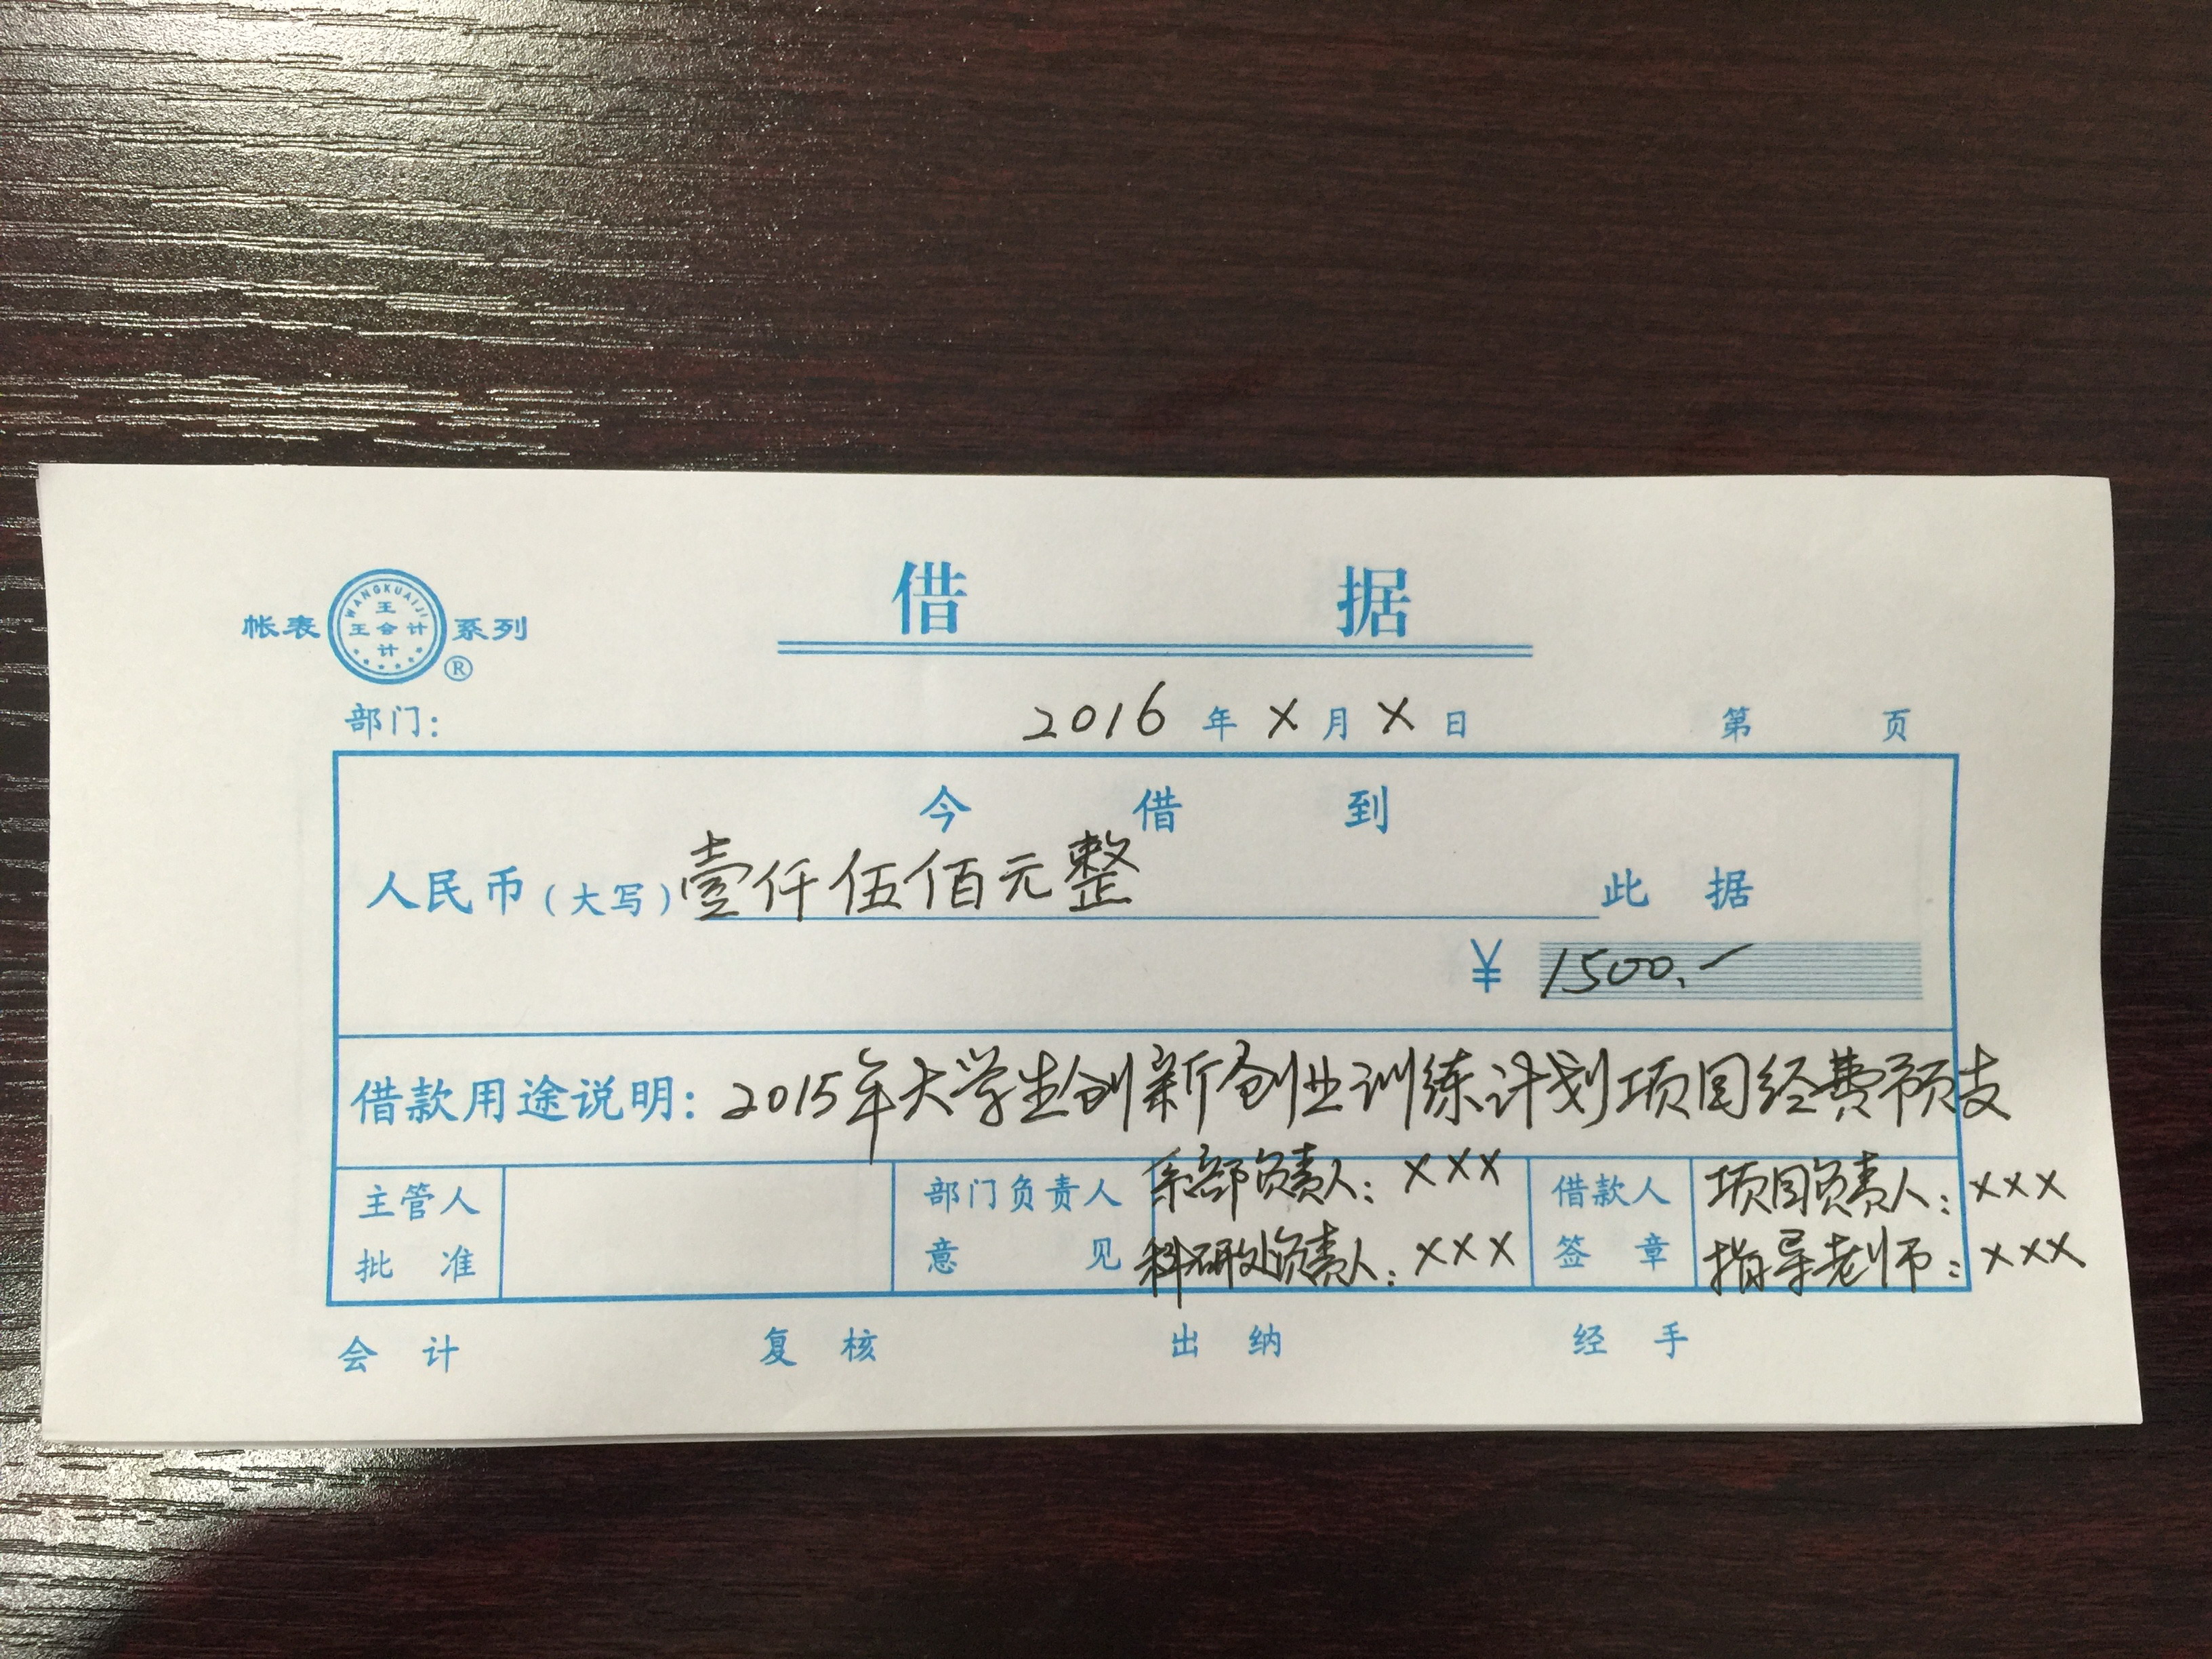 借 据
帐表 WANGKUAIJI 王 王会计 计 系列 ®
部门： 2016 年 × 月 × 日 第 页
今 借 到
人民币（大写）壹仟伍佰元整 此 据
¥ 1500.-
借款用途说明：2015年大学生创新创业训练计划项目经费预支
主管人 部门负责人 系部负责人：××× 借款人 项目负责人：×××
批 准 意 见 科研处负责人：××× 签 章 指导老师：×××
会 计 复 核 出 纳 经 手